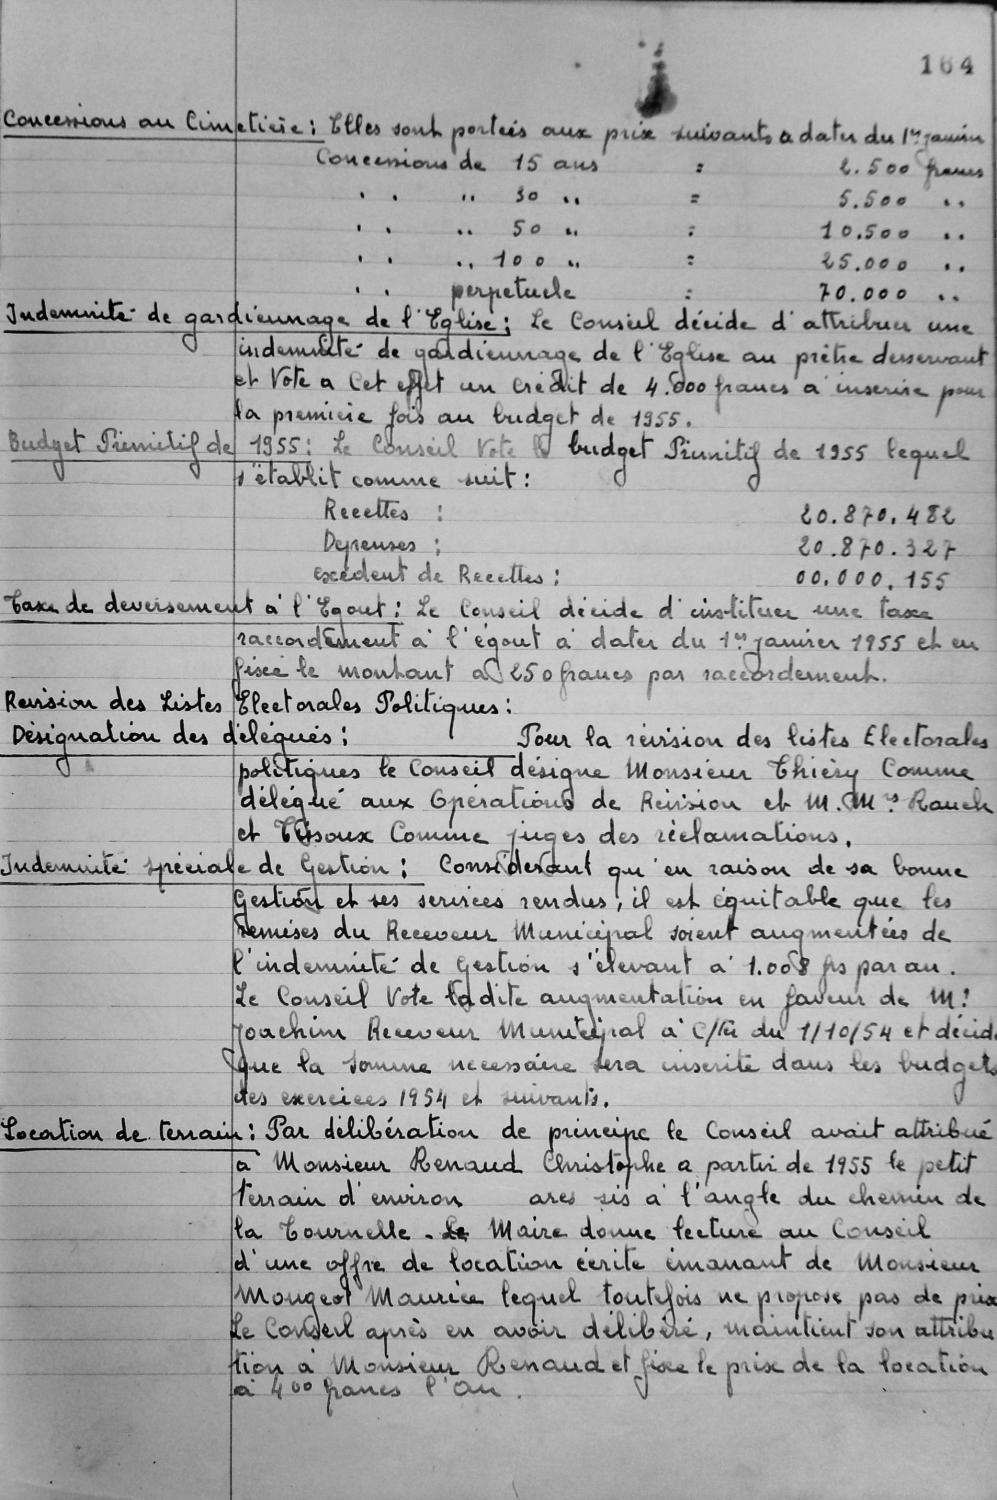 164
Concessions au Cimetière : Elles sont portées aux prix suivants a dater du 1er janvier
Concessions de 15 ans = 2.500 francs
" " " 30 " = 5.500 "
" " " 50 " = 10.500 "
" " " 100 " = 25.000 "
" " perpetuele = 70.000 "
Indemnité de gardiennage de l'Eglise : Le Conseil décide d'attribuer une
indemnité de gardiennage de l'Eglise au prêtre desservant
et Vote a Cet effet un crédit de 4.000 francs a inscrire pour
la première fois au budget de 1955.
Budget Primitif de 1955 : Le Conseil Vote le budget Primitif de 1955 lequel
s'établit comme suit :
Recettes : 20.870.482
Depenses : 20.870.327
excédent de Recettes : 00.000.155
Taxe de deversement à l'Egout : Le Conseil décide d'instituer une taxe
raccordement à l'égout à dater du 1er janvier 1955 et en
fixe le montant à 250 francs par raccordement.
Revision des Listes Electorales Politiques :
Désignation des délégués : Pour la révision des listes Electorales
politiques le Conseil désigne Monsieur Thiéry Comme
délégué aux Opérations de Révision et M.Mrs Rauch
et Comme juges des réclamations.
Indemnité spéciale de Gestion : Considérant qu'en raison de sa bonne
Gestion et ses services rendus, il est équitable que les
remises du Receveur Municipal soient augmentées de
l'indemnité de Gestion s'élevant à 1.008 frs par an.
Le Conseil Vote ladite augmentation en faveur de Mr
Joachim Receveur Municipal à C/ter du 1/10/54 et décide
que la somme necessaire sera inscrite dans les budgets
des exercices 1954 et suivants.
Location de terrain : Par délibération de principe le Conseil avait attribué
à Monsieur Renaud Christophe a partir de 1955 le petit
terrain d'environ ares sis à l'angle du chemin de
la Tournelle. Le Maire donne lecture au Conseil
d'une offre de location écrite émanant de Monsieur
Mougeot Maurice lequel toutefois ne propose pas de prix
Le Conseil après en avoir délibéré, maintient son attribu
tion à Monsieur Renaud et fixe le prix de la location
à 400 francs l'an.